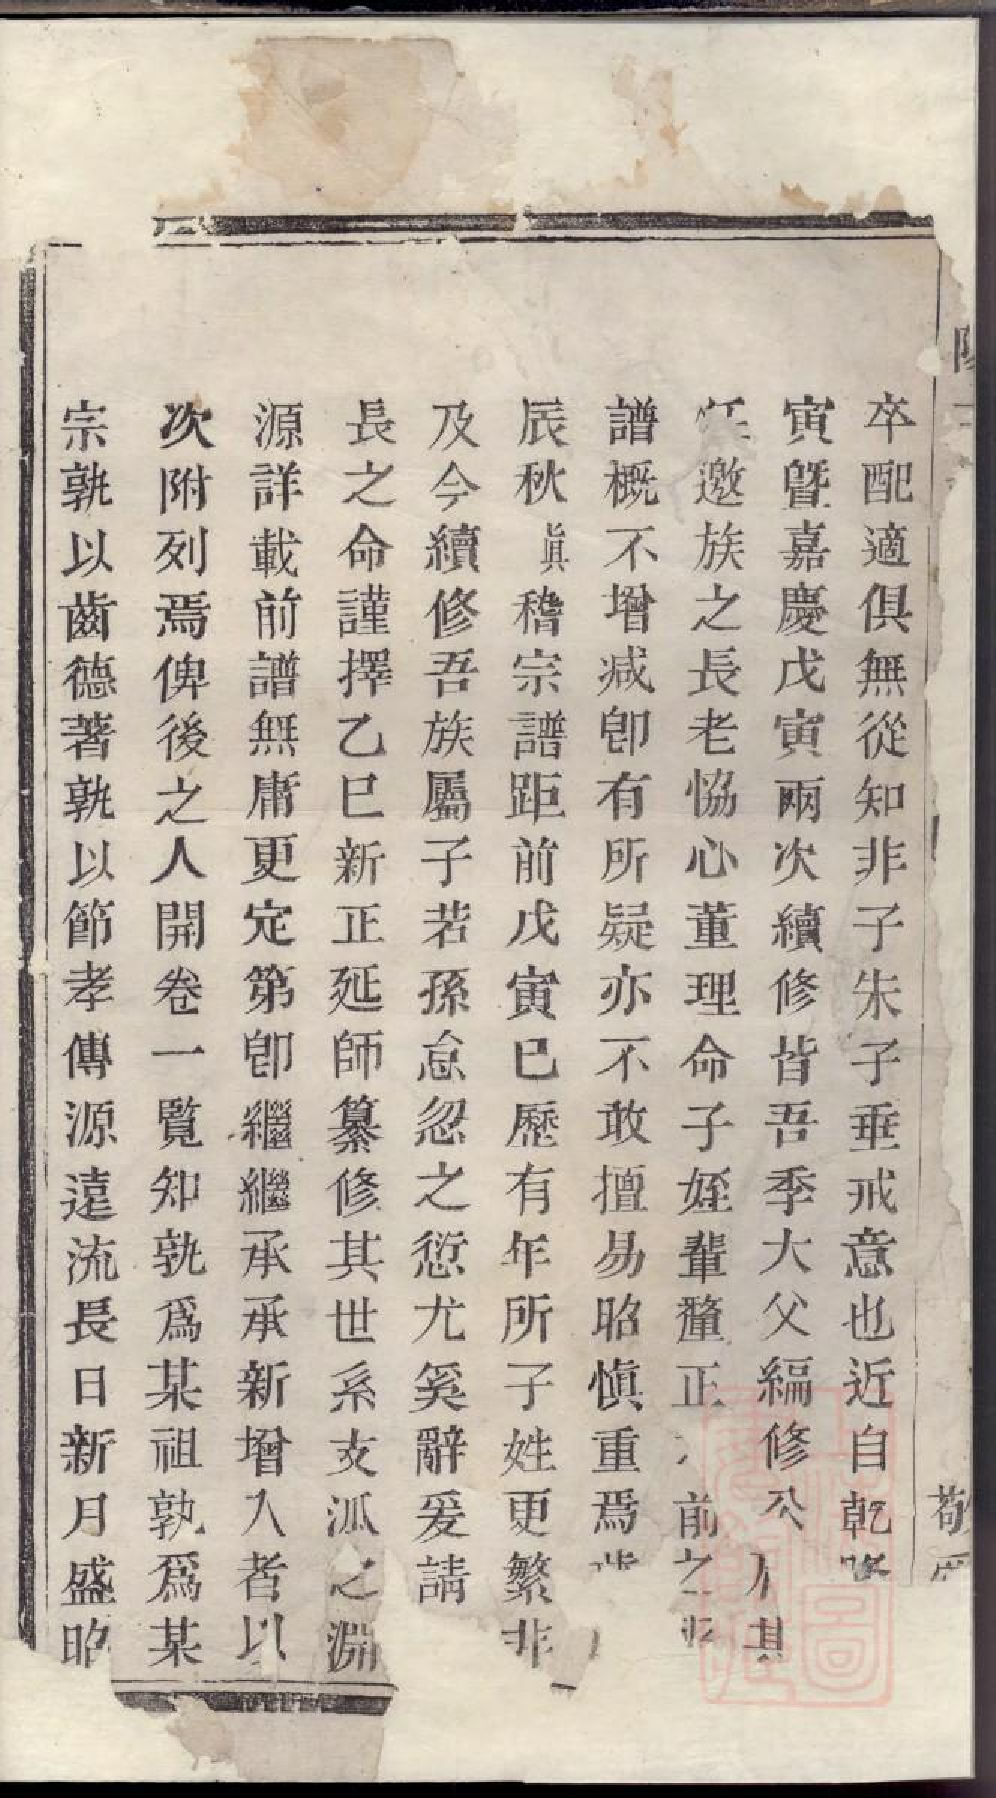 卒配適俱無從知非子朱子垂戒意也近自乾隆
寅曁嘉慶戊寅兩次續修皆吾季大父編修公
其
任邀族之長老恊心董理命子姪輩釐正
前之
譜概不增减卽有所疑亦不敢擅易昭愼重焉
辰秋眞稽宗譜距前戊寅已歷有年所子姓更繁非
及今續修吾族屬子若孫怠忽之愆尤奚辭爰請
長之命謹擇乙巳新正延師纂修其世系支派之淵
源詳載前譜無庸更定第卽繼繼承承新增入者以
次附列焉俾後之人開卷一覽知孰爲某祖孰爲某
宗孰以齒德著孰以節孝傳源遠流長日新月盛昭
敬